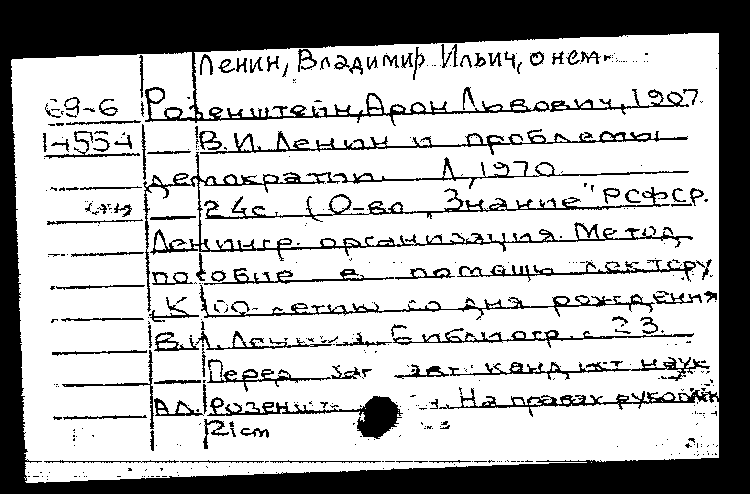 Ленин, Владимир Ильич, о нем.
69-6 Розенштейн, Арон Львович, 1907
14554 В.И. Ленин и проблемы
демократии. Л., 1970.
24с. (О-во "Знание" РСФСР.
Ленингр. организация. Метод.
пособие в помощь лектору
К 100-летию со дня рождения
В.И. Ленина. Библиогр. с. 23.
Перед заг. авт.: канд. ист. наук
А.Л. Розеншт На правах рукописи
21 cm